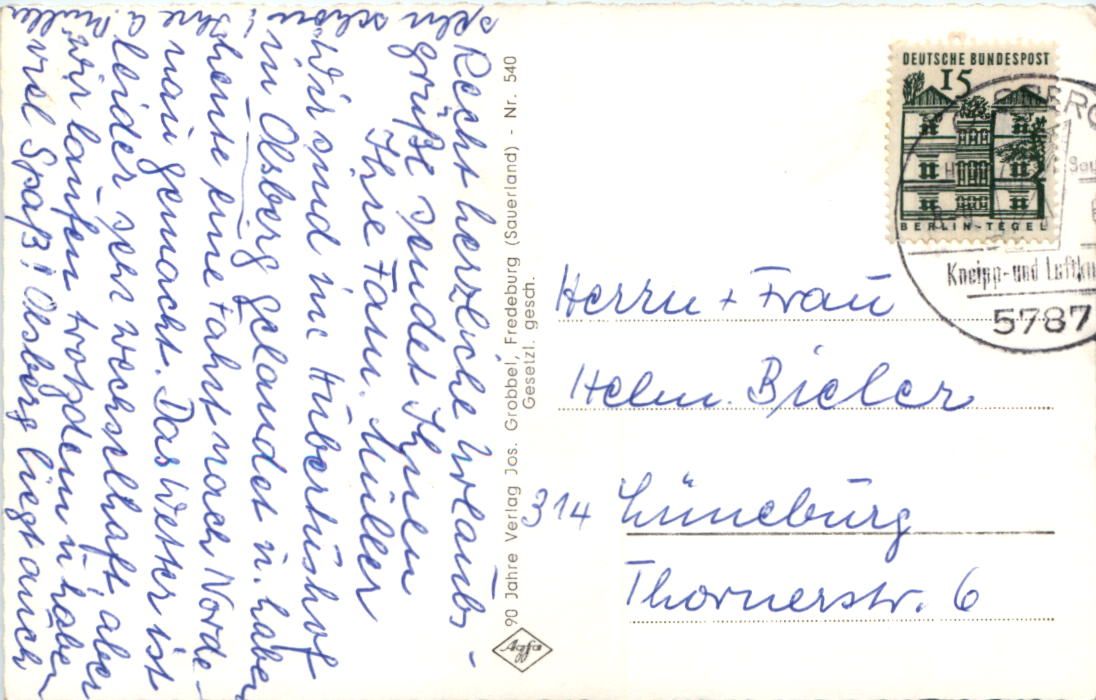 Recht herzliche Urlaubs-
grüße sendet Ihnen
Ihre Fam. Müller
Wir sind im Hubertushof
in Olsberg gelandet u. haben
heute eine Fahrt nach Norde-
nau gemacht. Das Wetter ist
leider sehr wechselhaft aber
wir laufen trotzdem u. haben
viel Spaß! Olsberg liegt auch
sehr
schön!
Ihre
Müller
90 Jahre Verlag Jos. Grobbel, Fredeburg (Sauerland) - Nr. 540
Gesetzl. gesch.
Agfa
DEUTSCHE BUNDESPOST
15
BERLIN-TEGEL
Kneipp- und
5787
Herrn + Frau
Helm. Bieler
314 Lüneburg
Thornerstr. 6